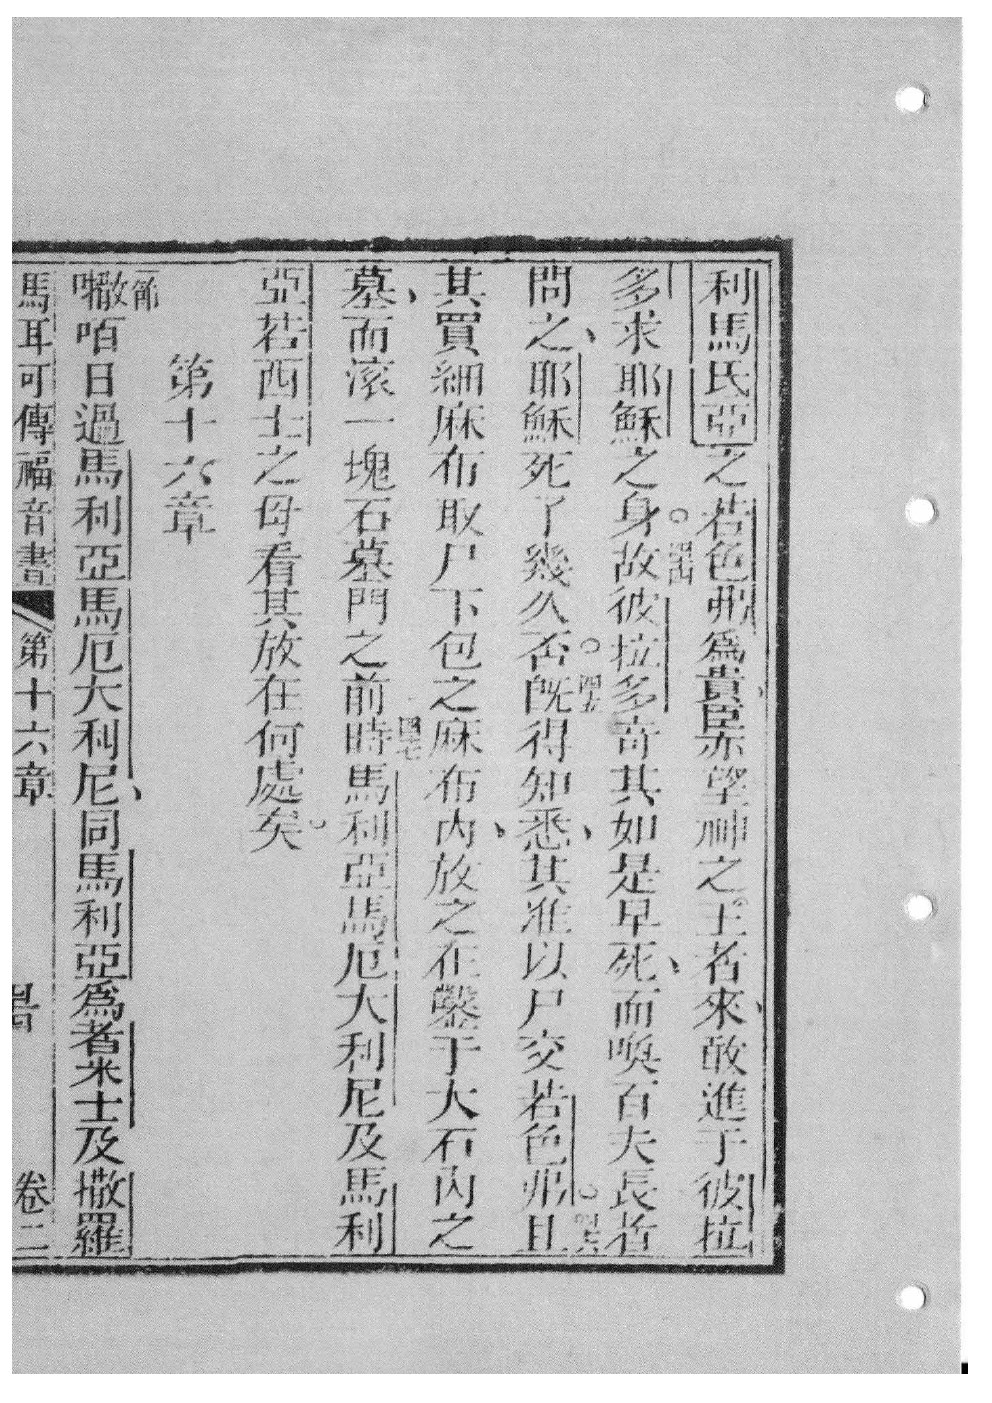 利馬氏亞之若色弗爲貴臣亦望神之王者來敢進于彼拉
多求耶穌之身故四四彼拉多奇其如是早死而喚百夫長者
問之耶穌死了幾久否四五旣得知悉其准以尸交若色弗四六且
其買細麻布取尸下包之麻布內放之在鑿于大石內之
墓而滚一塊石墓門之前時四七馬利亞馬厄大利尼及馬利
亞若西士之母看其放在何處矣
第十六章
一節㘔咟日過馬利亞馬厄大利尼同馬利亞爲者米士及撒羅
馬耳可傳福音書 第十六章 卷二